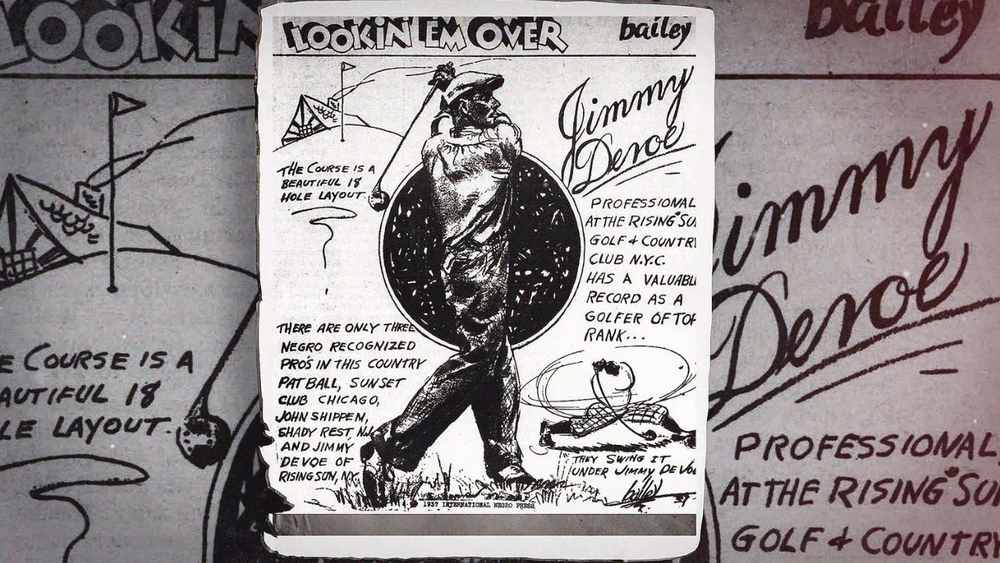 LOOKIN' EM OVER
bailey
Jimmy
Devoe
THE COURSE IS A
BEAUTIFUL 18
HOLE LAYOUT.
PROFESSIONAL
AT THE RISING SU
GOLF & COUNTR
CLUB N.Y.C.
HAS A VALUABL
RECORD AS A
GOLFER OF TO
RANK...
THERE ARE ONLY THREE
NEGRO RECOGNIZED
PRO'S IN THIS COUNTRY
PAT BALL, SUNSET
CLUB CHICAGO,
JOHN SHIPPEN,
SHADY REST, N.J.
AND JIMMY
DEVOE OF
RISING SUN, N.Y.
THEY SWING IT
UNDER JIMMY DE VO
bailey 37
© 1937 INTERNATIONAL NEGRO PRESS
LOOKIN
E COURSE IS A
AUTIFUL 18
LE LAYOUT.
bailey
immy
Devoe
PROFESSIONAL
AT THE RISING SU
GOLF & COUNTR